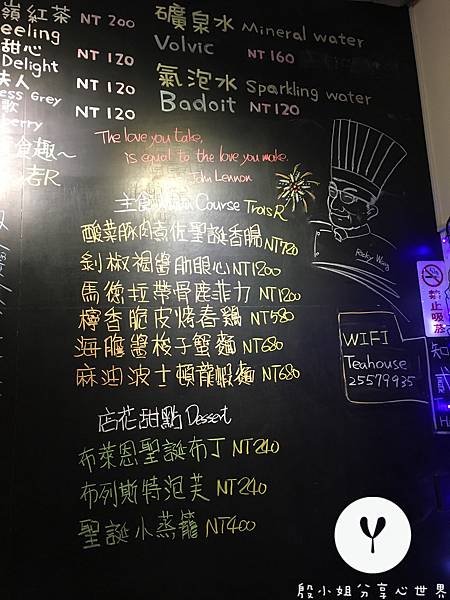 嶺紅茶 NT 200
eeling
甜心 NT 120
Delight
夫人 NT 120
ess Grey
歌 NT 120
berry
食趣~
礦泉水 Mineral water
Volvic NT 160
氣泡水 Sparkling water
Badoit NT 120
The love you take,
is equal to the love you make.
John Lennon
主食 Main Course Trois R
酸菜豚肉煮佐聖誕香腸 NT720
剁椒褐醬肋眼心 NT1200
馬德拉帶骨鹿菲力 NT1200
檸香脆皮烤春鷄 NT580
海膽醬梭子蟹麵 NT680
麻迪波士頓龍蝦麵 NT680
店花甜點 Dessert
布萊恩聖誕布丁 NT240
布列斯特泡芙 NT240
聖誕小蒸籠 NT400
Ricky Wang
禁止吸菸
WIFI
Teahouse
25579935
知
殷小姐分享心世界